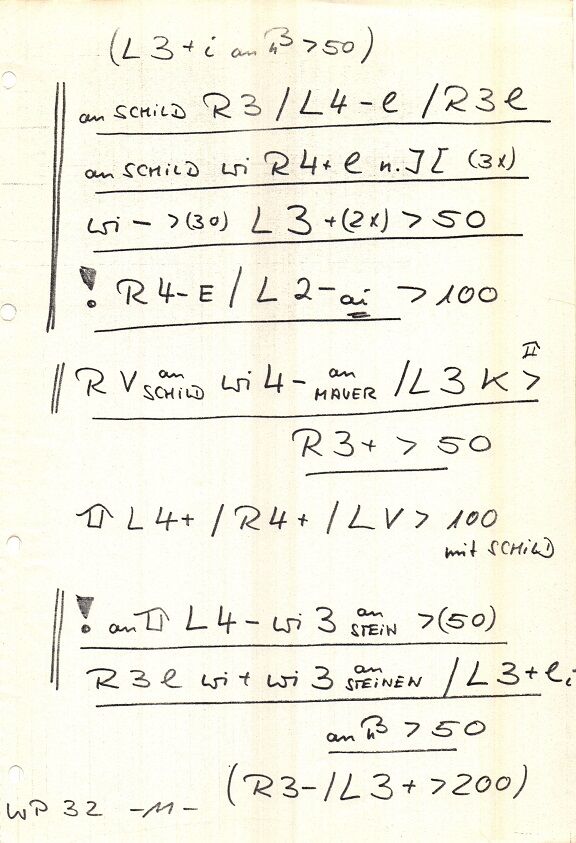 (L3+i an >50)
an SCHILD R3/L4-e/R3e
an SCHILD wi R4+e n. ][ (3x)
wi - >(30) L3+(2x) >50
! R4-E/L2-ai >100
RV an SCHILD wi 4- an MAUER /L3 K >
R3+ >50
L4+/R4+/LV> 100
mit SCHILD
! an L4- wi 3 an STEIN >(50)
R3e wi+ wi 3 an STEINEN /L3+ei
an >50
(R3-/L3+ >200)
WP 32 -11-